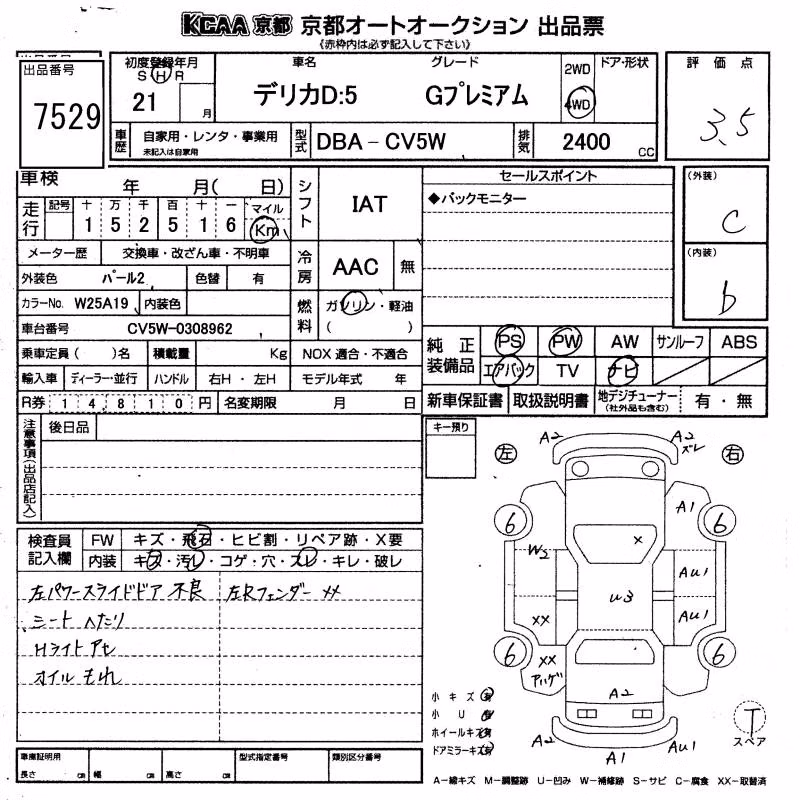 KCAA 京都 京都オートオークション 出品票
《赤枠内は必ず記入して下さい》
出品番号
7529
初度登録年月
S H R
21 月
車名 グレード
デリカD:5 Gプレミアム
2WD
4WD
ドア・形状
評価点
3.5
車歴 自家用・レンタ・事業用
未記入は自家用
型式 DBA-CV5W
排気 2400 CC
車検 年 月( 日)
走行 記号 十 万 千 百 十 一 マイル
1 5 2 5 1 6 Km
シフト IAT
メーター歴 交換車・改ざん車・不明車
外装色 パール2 色替 有
冷房 AAC 無
カラーNo. W25A19 内装色
燃料 ガソリン・軽油
( )
車台番号 CV5W-0308962
乗車定員( )名 積載量 Kg NOX適合・不適合
輸入車 ディーラー・並行 ハンドル 右H・左H モデル年式 年
R券 1 4 8 1 0 円 名変期限 月 日
セールスポイント
◆バックモニター
(外装)
C
(内装)
b
純正装備品 PS PW AW サンルーフ ABS
エアバック TV ナビ
新車保証書 取扱説明書 地デジチューナー
(社外品も含む)
有・無
注意事項(出品店記入)
後日品
検査員記入欄
FW キズ・飛石・ヒビ割・リペア跡・X要
内装 キズ・汚レ・コゲ・穴・スレ・キレ・破レ
左パワースライドドア 不良 左Rフェンダー XX
シート へたり
Hライト アセ
オイル もれ
キー預り
左 右
A2 A2
ズレ
A1
6 6
W2 X
AU1
U3
XX AU1
6 6
XX
アハゲ
A2
小キズ 有
小U 有
ホイールキズ 有
ドアミラーキズ 有
A2 A1 AU1
T
スペア
車庫証明用
長さ cm 幅 cm 高さ cm
型式指定番号 類別区分番号
A-線キズ M-調整跡 U-凹み W-補修跡 S-サビ C-腐食 XX-取替済